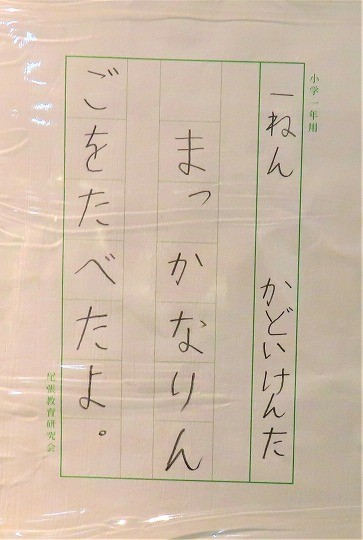 小学一年用
一ねん かどいけんた
まっかなりん
ごをたべたよ。
尾張教育研究会